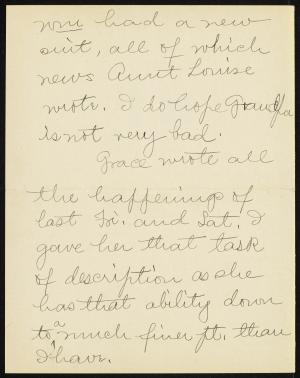 Wm had a new
suit, all of which
news Aunt Louise
wrote. I do hope Grandpa
is not very bad.
Grace wrote all
the happenings of
last Fri. and Sat. I
gave her that task
of description as she
has that ability down
to a much finer pt. than
I have.